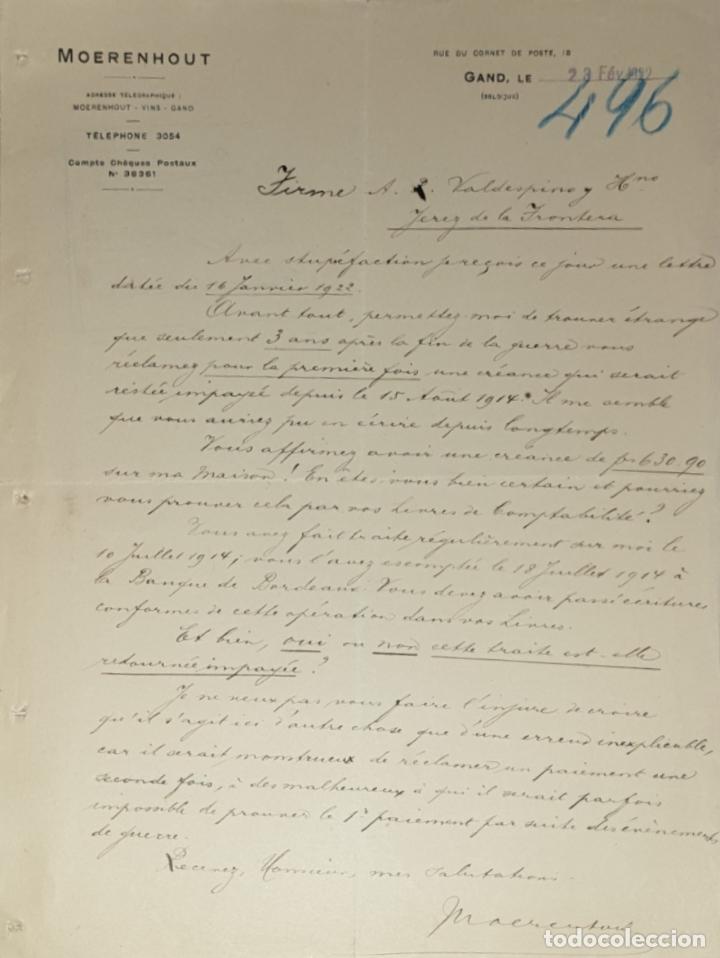 MOERENHOUT
ADRESSE TÉLÉGRAPHIQUE :
MOERENHOUT - VINS - GAND
TÉLÉPHONE 3054
Compte Chèques Postaux
N° 38361
RUE DU CORNET DE POSTE, 18
GAND, LE 23 Fév 1922
(BELGIQUE)
496
Firme A. R. Valdespino y Hno
Jerez de la Frontera
Avec stupéfaction je reçois ce jour une lettre
datée du 16 Janvier 1922.
Avant tout, permettez-moi de trouver étrange
que seulement 3 ans après la fin de la guerre vous
réclamez pour la première fois une créance qui serait
restée impayée depuis le 15 Août 1914. Il me semble
que vous auriez pu en écrire depuis longtemps.
Vous affirmez avoir une créance de frs 630.90
sur ma Maison ! En êtes-vous bien certain et pourriez
vous prouver cela par vos Livres de Comptabilité ?
Vous avez fait traite régulièrement sur moi le
10 Juillet 1914 ; vous l'avez escomptée le 18 Juillet 1914 à
la Banque de Bordeaux. Vous devez avoir passé écritures
conformes de cette opération dans vos Livres.
Et bien, oui ou non cette traite est-elle
retournée impayée ?
Je ne veux pas vous faire l'injure de croire
qu'il s'agit ici d'autre chose que d'une erreur inexplicable,
car il serait monstrueux de réclamer un paiement une
seconde fois, à des malheureux à qui il serait parfois
impossible de prouver le 1r paiement par suite des évènements
de guerre.
Recevez, Monsieur, mes salutations.
Moerenhout
todocoleccion.net